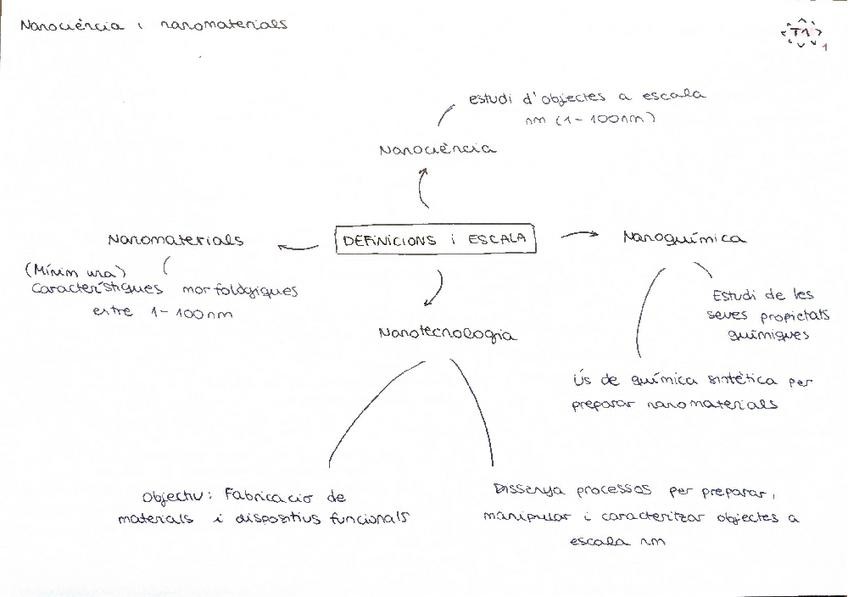 Nanociència i nanomaterials
T1
1
estudi d'objectes a escala
nm (1-100nm)
Nanociència
Nanomaterials
DEFINICIONS i ESCALA
Nanoquímica
(Mínim una)
característiques morfològiques
entre 1-100nm
Estudi de les
seves propietats
químiques
Nanotecnologia
Ús de química sintètica per
preparar nanomaterials
Objectiu: Fabricació de
materials i dispositius funcionals
Dissenya processos per preparar,
manipular i caracteritzar objectes a
escala nm